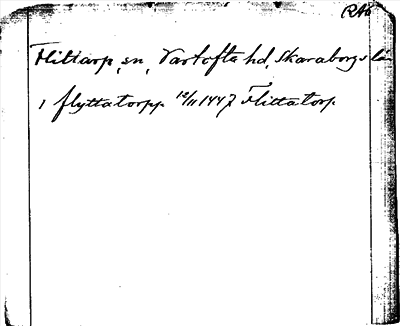 RAö
Flittarp, sn, Vartofta hd, Skaraborgs län
i flyttatorpp 12/11 1447 Flittatorp